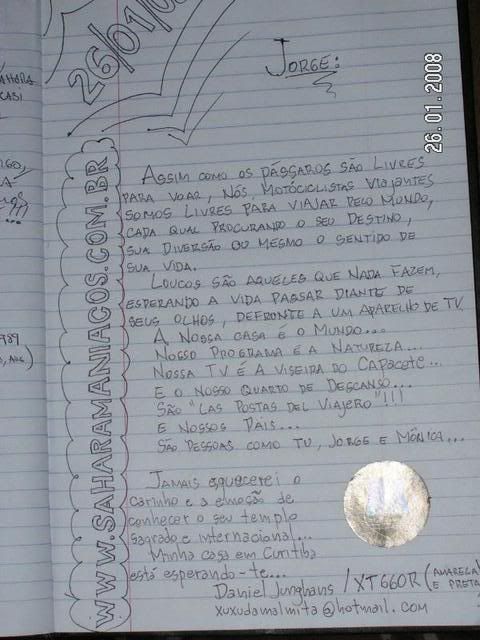 26/01/0
JORGE:
26.01.2008
ASSIM COMO OS PÁSSAROS SÃO LIVRES
PARA VOAR, NÓS, MOTOCICLISTAS VIAJANTES
SOMOS LIVRES PARA VIAJAR PELO MUNDO,
CADA QUAL PROCURANDO O SEU DESTINO,
SUA DIVERSÃO OU MESMO O SENTIDO DE
SUA VIDA.
LOUCOS SÃO AQUELES QUE NADA FAZEM,
ESPERANDO A VIDA PASSAR DIANTE DE
SEUS OLHOS, DEFRONTE A UM APARELHO DE TV.
A NOSSA CASA É O MUNDO...
NOSSO PROGRAMA É A NATUREZA...
NOSSA TV É A VISEIRA DO CAPACETE...
E O NOSSO QUARTO DE DESCANSO...
SÃO "LAS POSTAS DEL VIAJERO"!!!
E NOSSOS PAIS...
SÃO PESSOAS COMO TU, JORGE E MÔNICA...
Jamais esquecerei o
carinho e a emoção de
conhecer o seu templo
sagrado e internacional...
Minha casa em Curitiba
está esperando-te...
Daniel Junghans / XT660R (AMARELA
E PRETA
xuxudamalmita@hotmail.com
WWW.SAHARAMANIACOS.COM.BR
AHARA
CASI